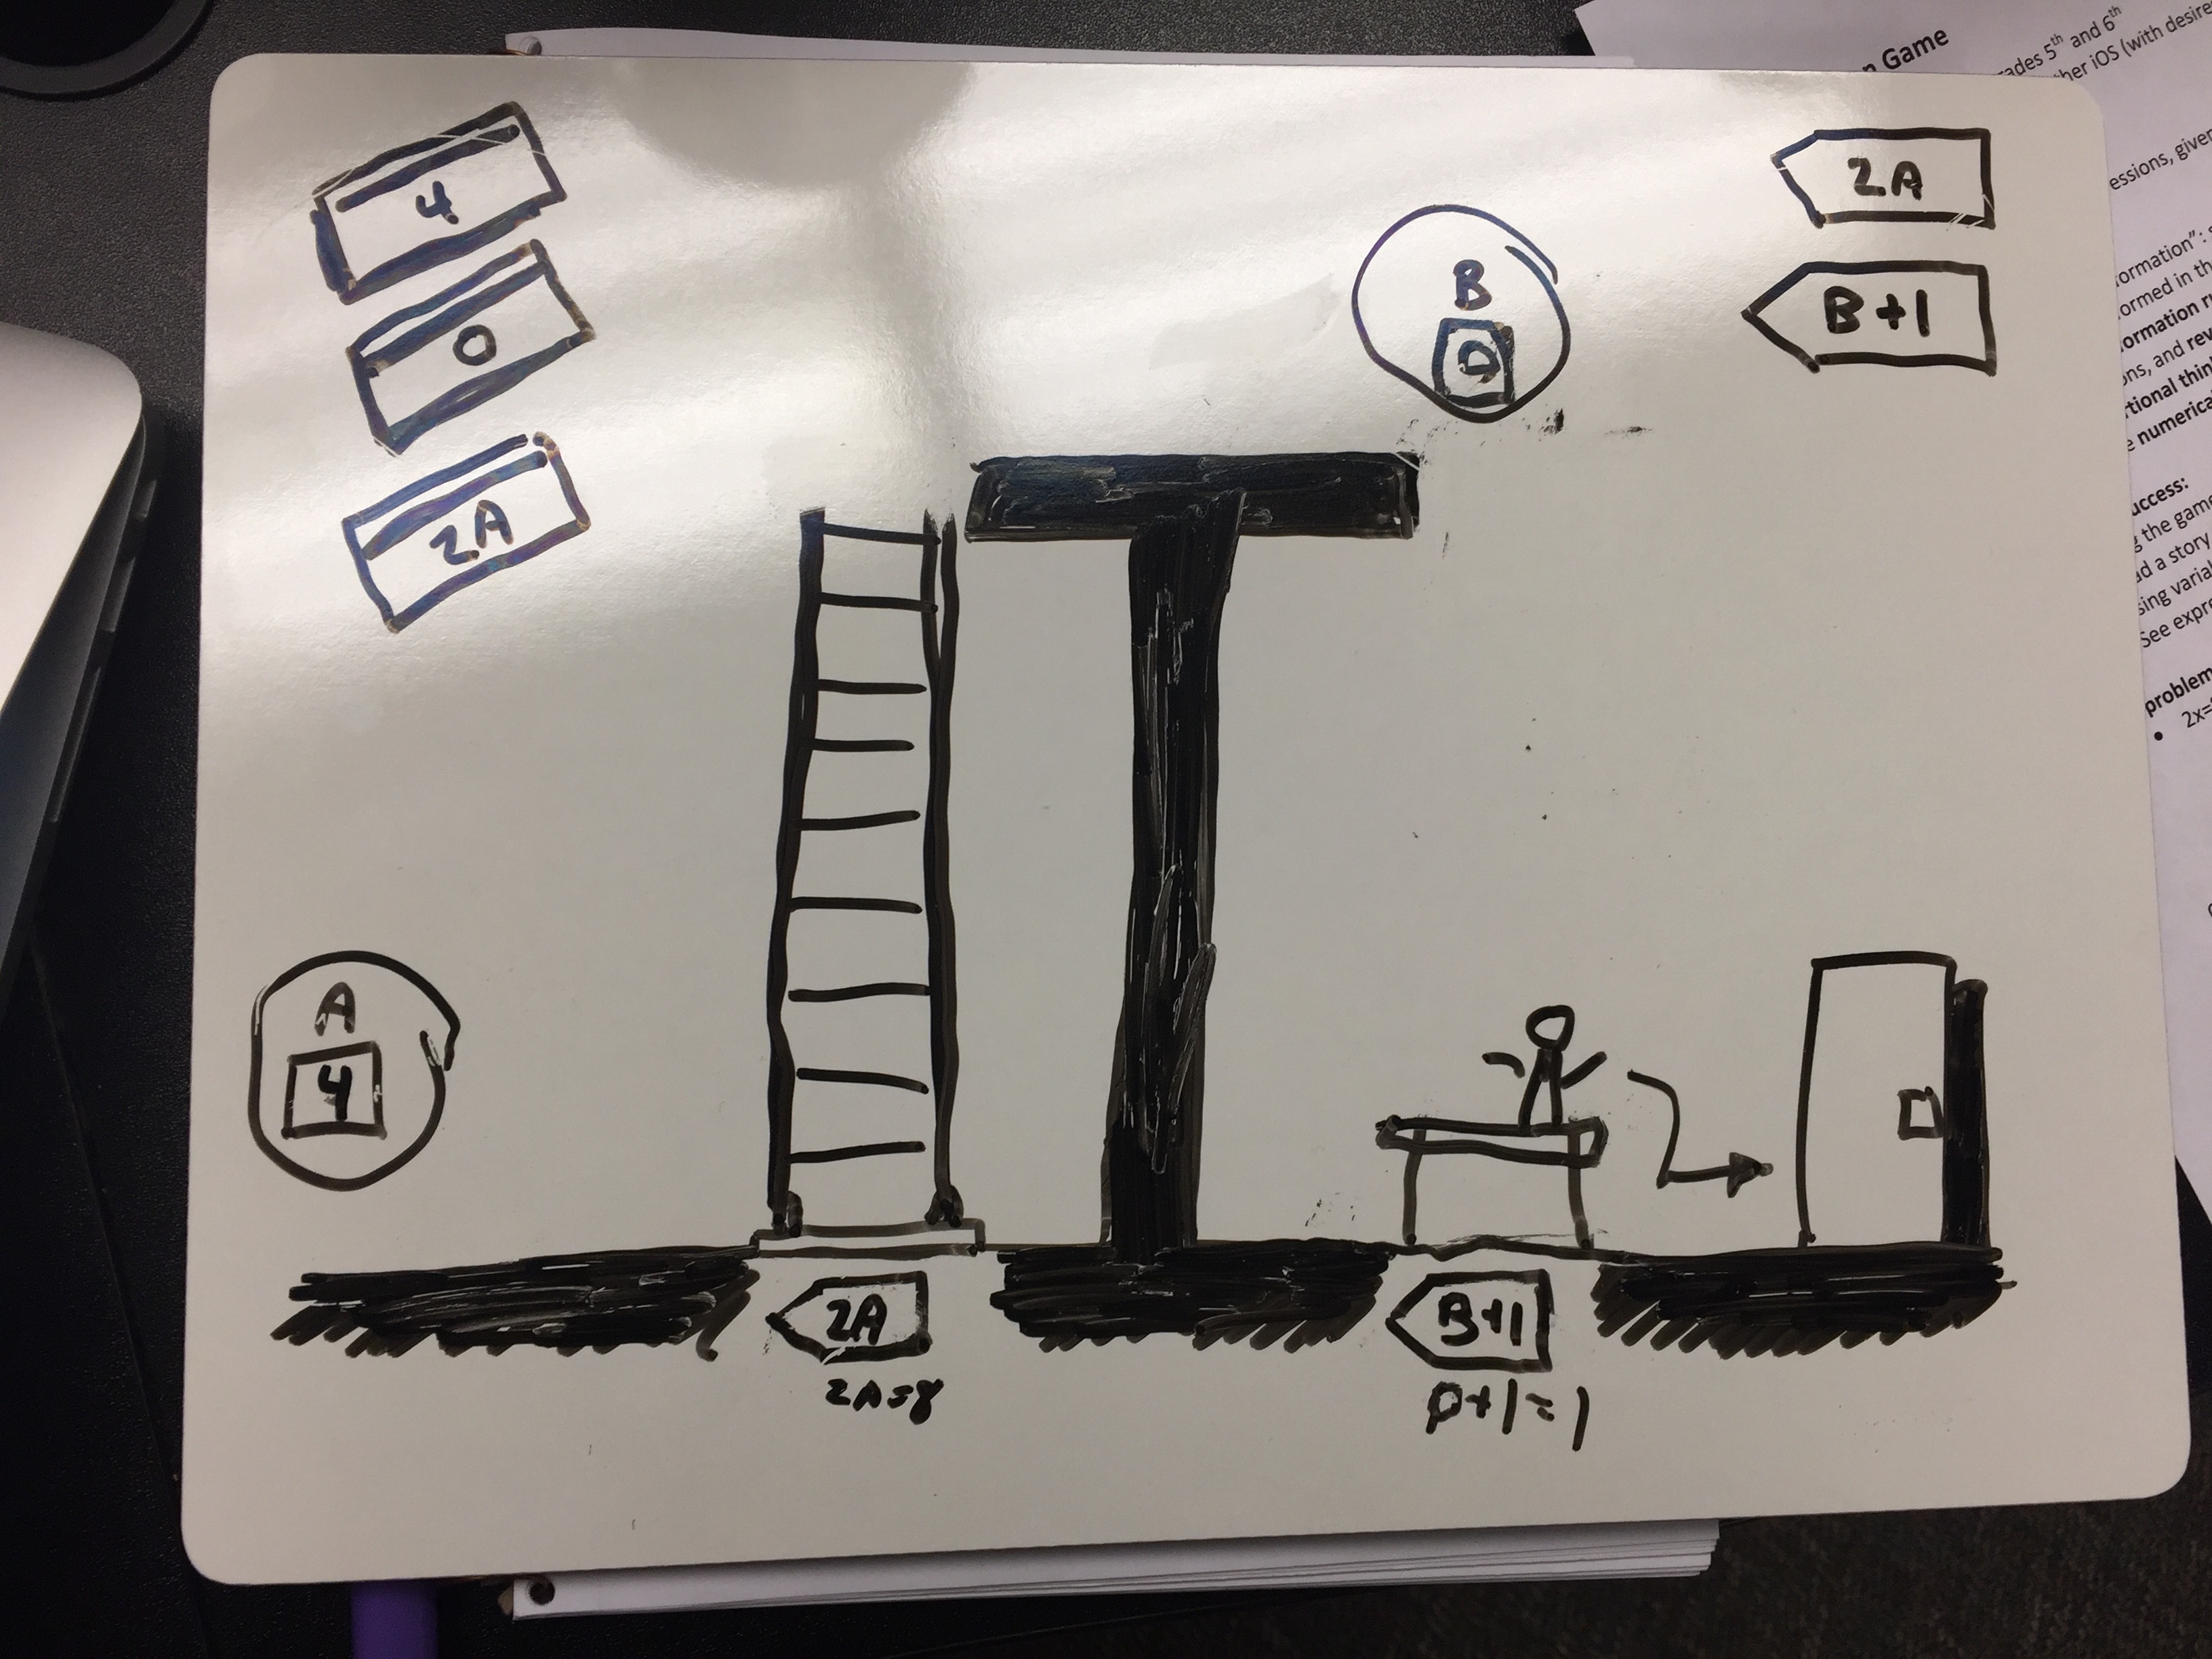 4
0
2A
2A
B+1
B
0
A
4
2A
2A=8
B+1
0+1=1
Game
rades 5th and 6th
her iOS (with desire
essions, given
ormation":
ormed in th
ormation ru
ons, and rev
rtional thin
e numerica
uccess:
g the game
ad a story
sing varia
See expre
problem
• 2x=